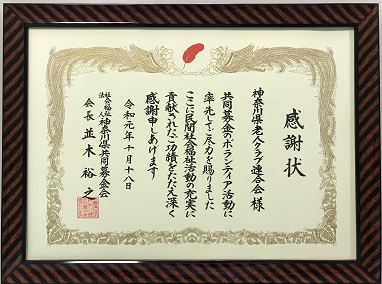 感謝状
神奈川県老人クラブ連合会 様
共同募金のボランティア活動に
率先してご尽力を賜りました
ここに民間社会福祉活動の充実に
貢献されたご功績をたたえ深く
感謝申しあげます
令和元年十月十八日
社会福祉法人 神奈川県共同募金会
会長 並木裕之